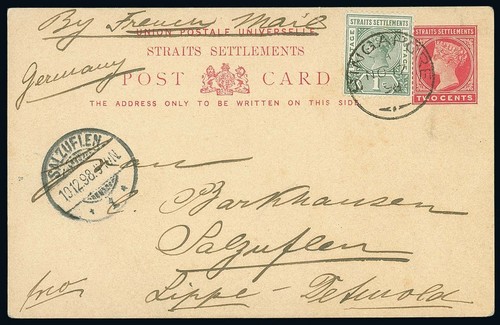 By French Mail
UNION POSTALE UNIVERSELLE
STRAITS SETTLEMENTS
Germany
POST CARD
THE ADDRESS ONLY TO BE WRITTEN ON THIS SIDE
STRAITS SETTLEMENTS
POSTAGE
POSTAGE
1
SINGAPORE
98
STRAITS SETTLEMENTS
TWO CENTS
SALZUFLEN
10.12.98
C. Barkhausen
Salzuflen
Lippe-Detmold